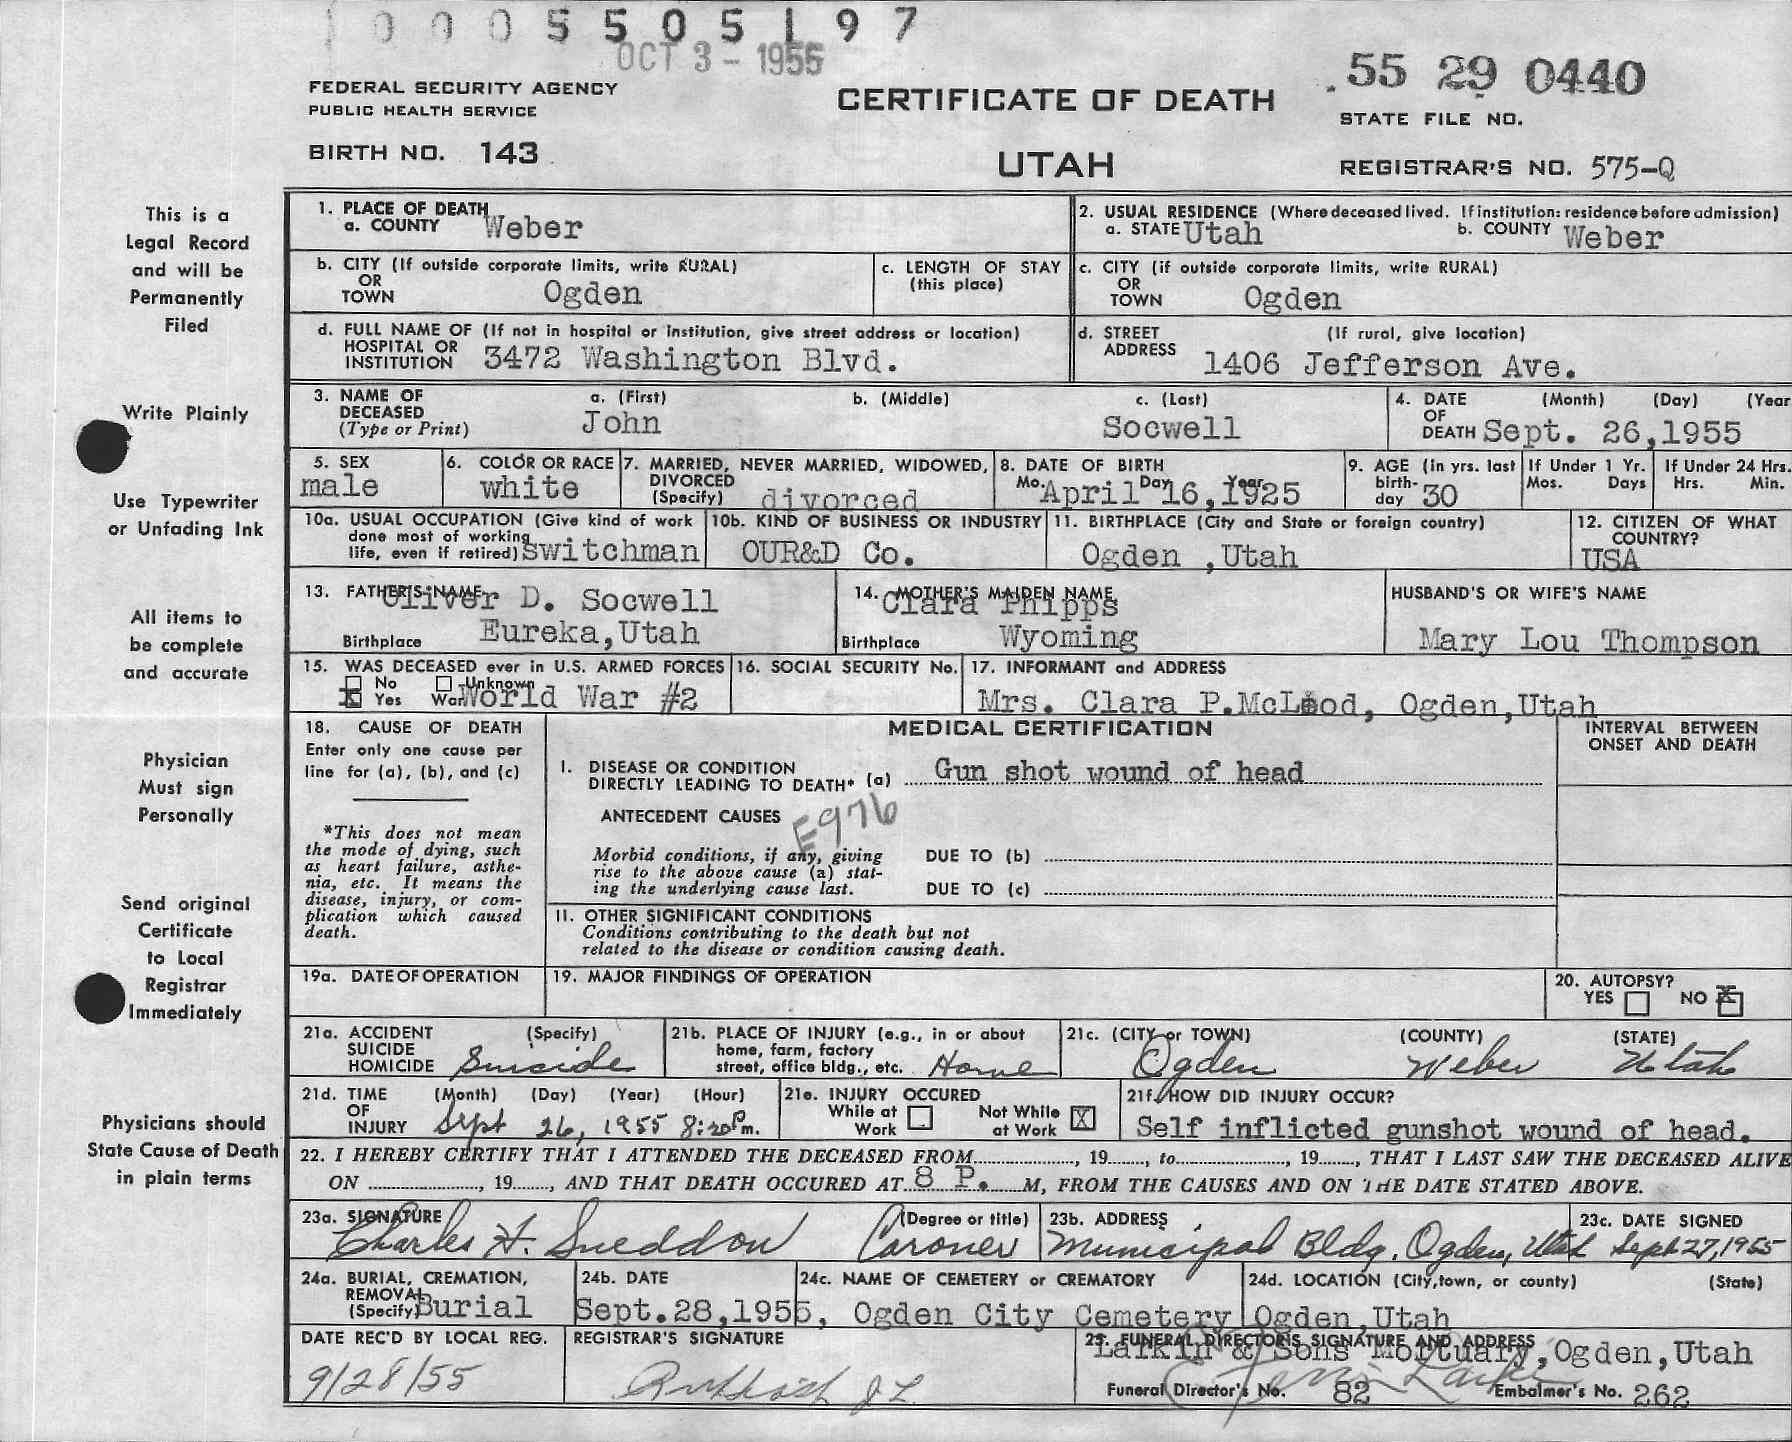 1 0 0 0 5 5 0 5 1 9 7
OCT 3 - 1955
FEDERAL SECURITY AGENCY
PUBLIC HEALTH SERVICE
BIRTH NO. 143
CERTIFICATE OF DEATH
UTAH
55 29 0440
STATE FILE NO.
REGISTRAR'S NO. 575-Q
This is a
Legal Record
and will be
Permanently
Filed
Write Plainly
Use Typewriter
or Unfading Ink
All items to
be complete
and accurate
Physician
Must sign
Personally
Send original
Certificate
to Local
Registrar
Immediately
Physicians should
State Cause of Death
in plain terms
1. PLACE OF DEATH
a. COUNTY Weber
2. USUAL RESIDENCE (Where deceased lived. If institution: residence before admission)
a. STATE Utah b. COUNTY Weber
b. CITY (If outside corporate limits, write RURAL)
OR
TOWN Ogden
c. LENGTH OF STAY
(this place)
c. CITY (if outside corporate limits, write RURAL)
OR
TOWN Ogden
d. FULL NAME OF (If not in hospital or institution, give street address or location)
HOSPITAL OR
INSTITUTION 3472 Washington Blvd.
d. STREET (If rural, give location)
ADDRESS 1406 Jefferson Ave.
3. NAME OF a. (First) b. (Middle) c. (Last)
DECEASED
(Type or Print) John Socwell
4. DATE (Month) (Day) (Year
OF
DEATH Sept. 26,1955
5. SEX
male
6. COLOR OR RACE
white
7. MARRIED, NEVER MARRIED, WIDOWED,
DIVORCED
(Specify) divorced
8. DATE OF BIRTH
Mo. Day Year
April 16,1925
9. AGE (in yrs. last
birth-
day 30
If Under 1 Yr.
Mos. Days
If Under 24 Hrs.
Hrs. Min.
10a. USUAL OCCUPATION (Give kind of work
done most of working
life, even if retired) switchman
10b. KIND OF BUSINESS OR INDUSTRY
OUR&D Co.
11. BIRTHPLACE (City and State or foreign country)
Ogden ,Utah
12. CITIZEN OF WHAT
COUNTRY?
USA
13. FATHER'S NAME
Oliver D. Socwell
Birthplace Eureka,Utah
14. MOTHER'S MAIDEN NAME
Clara Phipps
Birthplace Wyoming
HUSBAND'S OR WIFE'S NAME
Mary Lou Thompson
15. WAS DECEASED ever in U.S. ARMED FORCES
No Unknown
X Yes War World War #2
16. SOCIAL SECURITY No.
17. INFORMANT and ADDRESS
Mrs. Clara P.McLeod, Ogden,Utah
18. CAUSE OF DEATH
Enter only one cause per
line for (a), (b), and (c)
*This does not mean
the mode of dying, such
as heart failure, asthe-
nia, etc. It means the
disease, injury, or com-
plication which caused
death.
MEDICAL CERTIFICATION
INTERVAL BETWEEN
ONSET AND DEATH
I. DISEASE OR CONDITION
DIRECTLY LEADING TO DEATH* (a) Gun shot wound of head
ANTECEDENT CAUSES
E976
Morbid conditions, if any, giving
rise to the above cause (a) stat-
ing the underlying cause last.
DUE TO (b)
DUE TO (c)
II. OTHER SIGNIFICANT CONDITIONS
Conditions contributing to the death but not
related to the disease or condition causing death.
19a. DATE OF OPERATION
19. MAJOR FINDINGS OF OPERATION
20. AUTOPSY?
YES NO X
21a. ACCIDENT (Specify)
SUICIDE
HOMICIDE Suicide
21b. PLACE OF INJURY (e.g., in or about
home, farm, factory
street, office bldg., etc. Home
21c. (CITY or TOWN) (COUNTY) (STATE)
Ogden Weber Utah
21d. TIME (Month) (Day) (Year) (Hour)
OF
INJURY Sept 26, 1955 8:20 Pm.
21e. INJURY OCCURED
While at Not While
Work at Work X
21f. HOW DID INJURY OCCUR?
Self inflicted gunshot wound of head.
22. I HEREBY CERTIFY THAT I ATTENDED THE DECEASED FROM , 19 , to , 19 , THAT I LAST SAW THE DECEASED ALIVE
ON , 19 , AND THAT DEATH OCCURED AT 8 P. M, FROM THE CAUSES AND ON THE DATE STATED ABOVE.
23a. SIGNATURE (Degree or title)
Charles H. Sneddon Coroner
23b. ADDRESS
Municipal Bldg, Ogden, Utah
23c. DATE SIGNED
Sept 27, 1955
24a. BURIAL, CREMATION,
REMOVAL
(Specify) Burial
24b. DATE
Sept.28,1955,
24c. NAME OF CEMETERY or CREMATORY
Ogden City Cemetery
24d. LOCATION (City,town, or county) (State)
Ogden,Utah
DATE REC'D BY LOCAL REG.
9/28/55
REGISTRAR'S SIGNATURE
25. FUNERAL DIRECTOR'S SIGNATURE AND ADDRESS
Larkin & Sons Mortuary,Ogden,Utah
Funeral Director's No. 82 Embalmer's No. 262